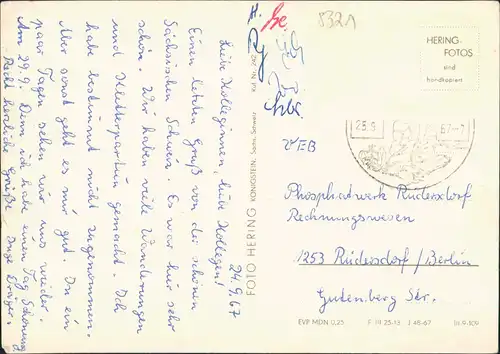 24.9.67
Liebe Kolleginnen, liebe Kollegen!
Einen letzten Gruß von der schönen
Sächsischen Schweiz. Es war hier sehr
schön. Wir haben viele Wanderungen
und Kletterpartien gemacht. Ich
habe bestimmt nicht zugenommen.
Aber sonst geht es mir gut. In ein
paar Tagen sehen wir uns wieder.
Am 29.9. Denn ich habe einen Tag Schonung
Recht herzliche Grüße
Inge
FOTO HERING KÖNIGSTEIN, Sächs. Schweiz
8321
HERING-
FOTOS
sind
handkopiert
VEB
Phosphatwerk Rüdersdorf
Rechnungswesen
1253 Rüdersdorf / Berlin
Gutenberg Str.
EVP MDN 0,25 F III 25-13 J 48-67